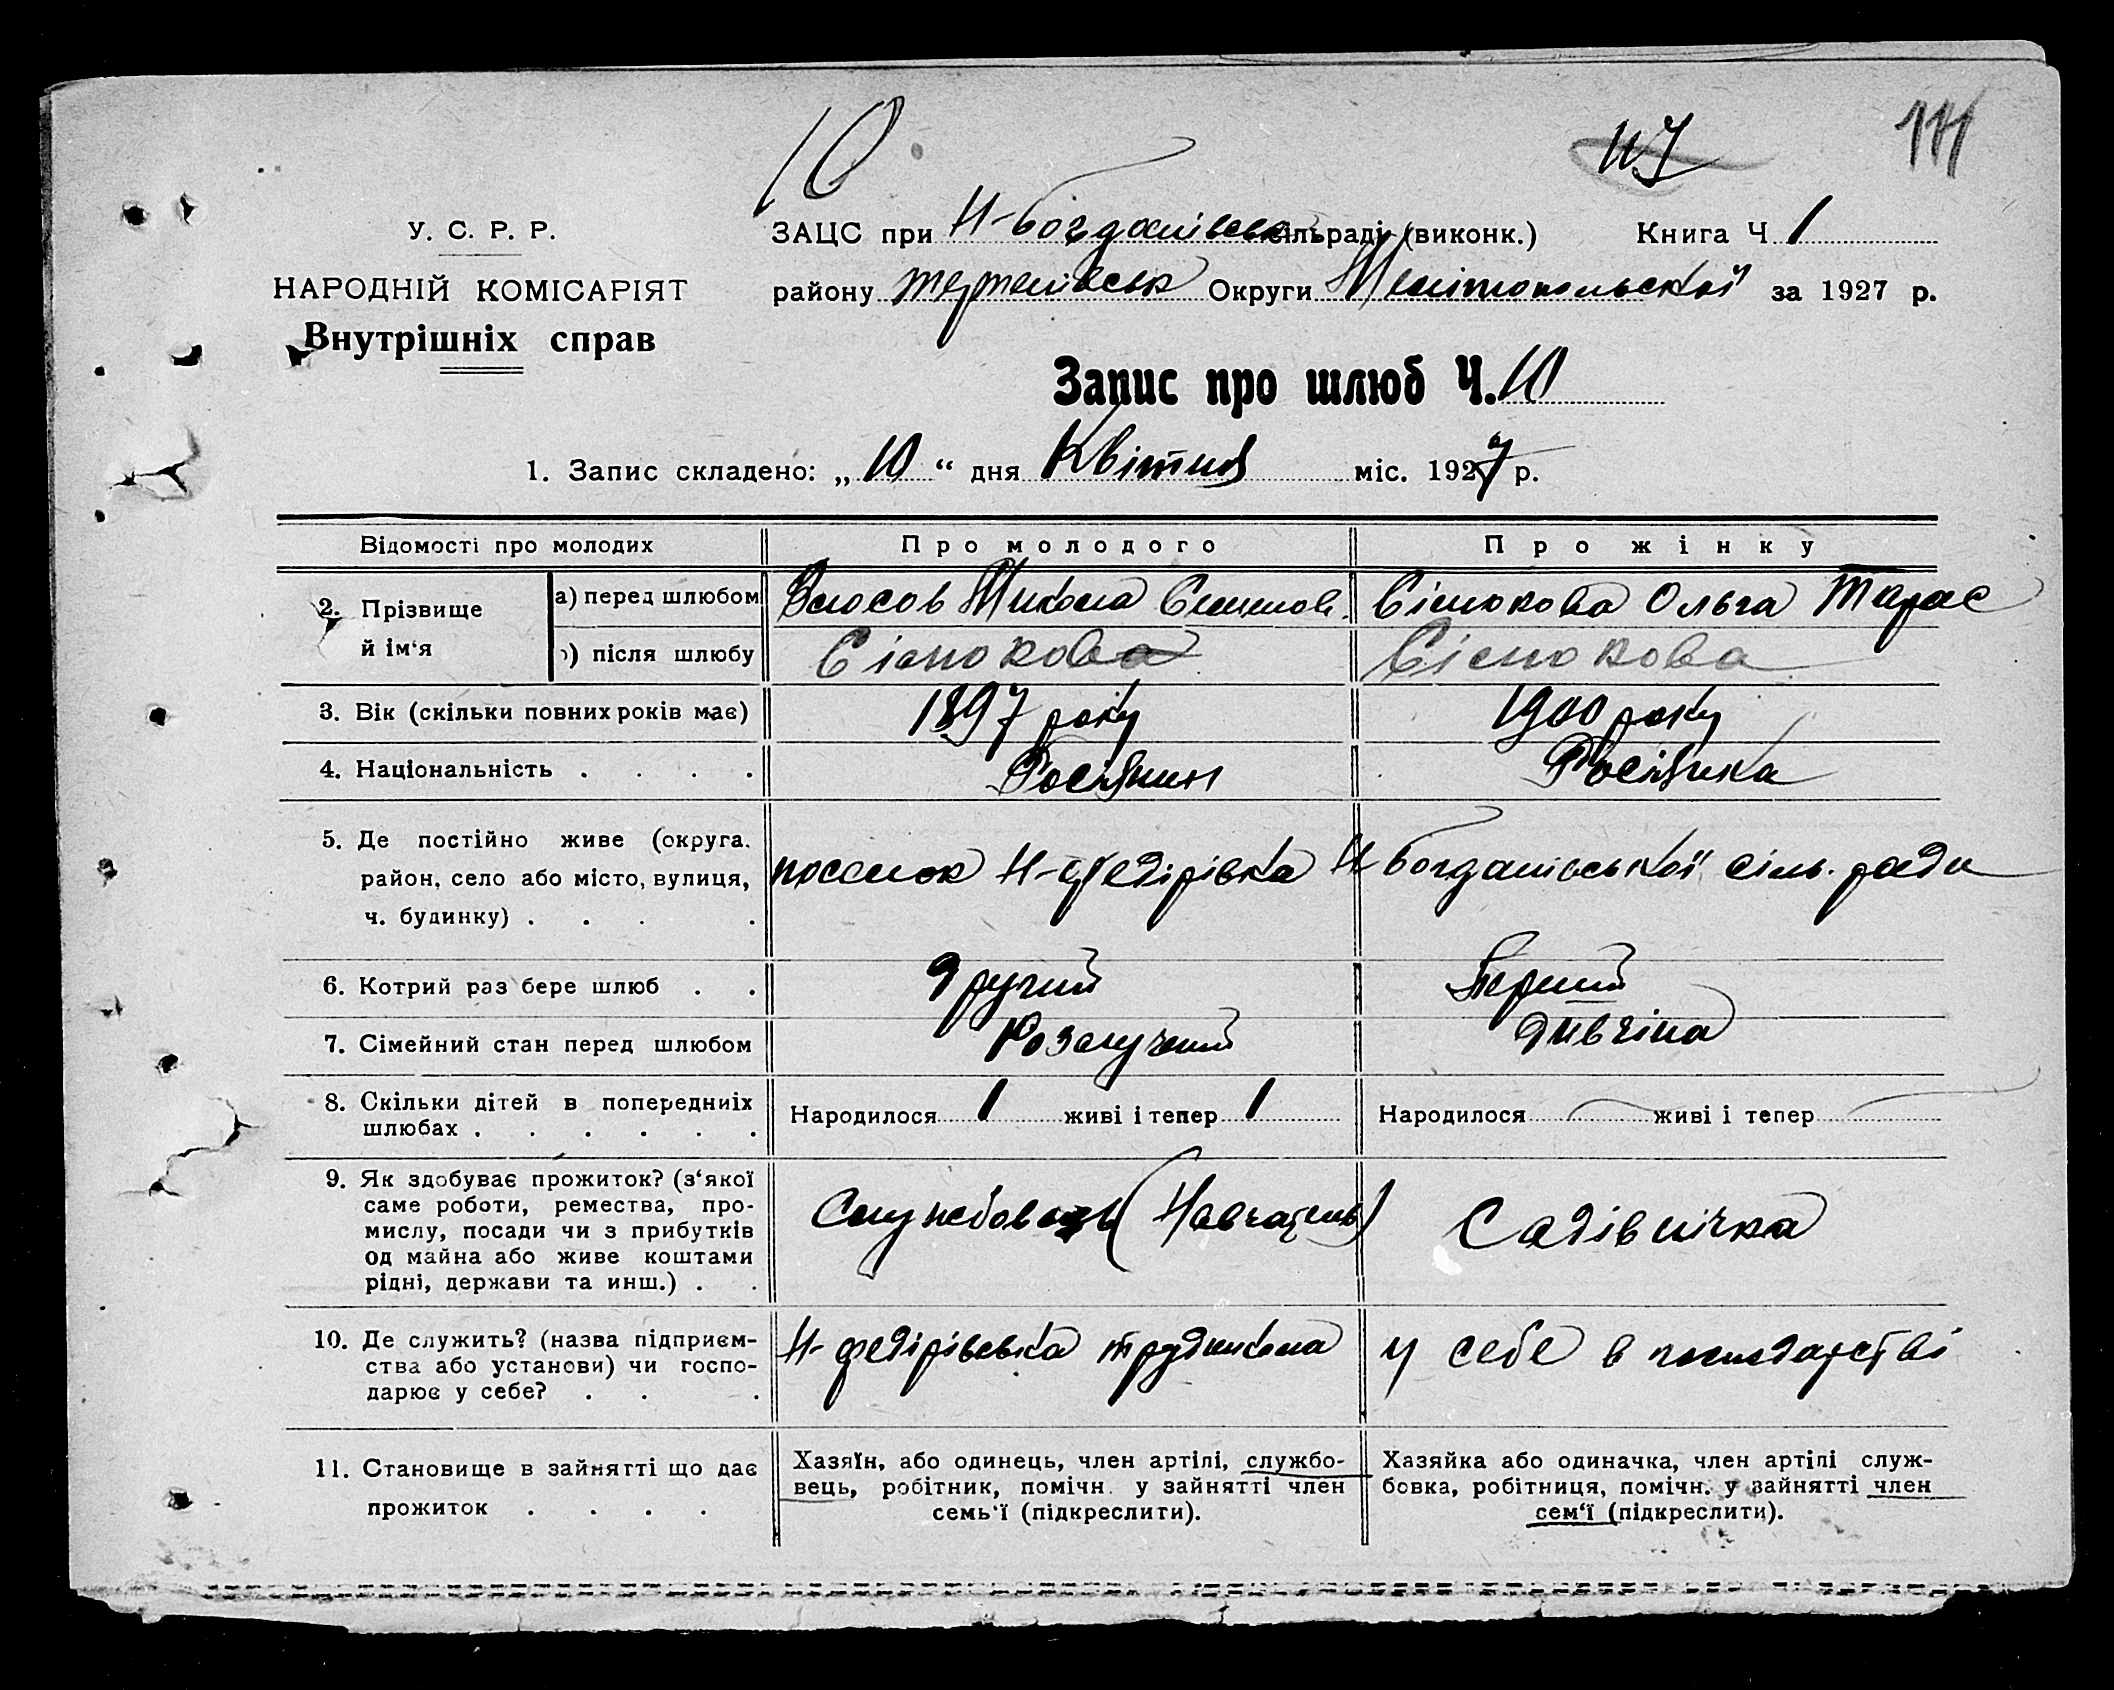 10
117
111
У. С. Р. Р.
НАРОДНІЙ КОМІСАРІЯТ
Внутрішніх справ
ЗАЦС при Н-богданівськ сільраді (виконк.) Книга Ч 1
району терпенівськ Округи Мелітопольської за 1927 р.
Запис про шлюб Ч. 10
1. Запис складено: „10“ дня Квітня міс. 1927 р.
Відомості про молодих Про молодого Про жінку
2. Прізвище й ім‘я
а) перед шлюбом Власов Микола Семенов. Сімокова Ольга Тарас
б) після шлюбу Сімокова Сімокова
3. Вік (скільки повних років має) 1897 року 1900 року
4. Національність . . . . Росіянин Росіянка
5. Де постійно живе (округа,
район, село або місто, вулиця,
ч. будинку) . . . .
поселок Н-федірівка Н богданівської сіль. ради
6. Котрий раз бере шлюб . . Другий Перший
7. Сімейний стан перед шлюбом Розлучений дивчіна
8. Скільки дітей в попередніх
шлюбах . . . . . .
Народилося 1 живі і тепер 1 Народилося — живі і тепер —
9. Як здобуває прожиток? (з‘якої
саме роботи, ремества, про-
мислу, посади чи з прибутків
од майна або живе коштами
рідні, держави та инш.) . .
Службовець (Навчатель) Садівнічка
10. Де служить? (назва підприєм-
ства або установи) чи госпо-
дарює у себе? . . .
Н-федірівська трудшкола у себе в господарстві
11. Становище в зайнятті що дає
прожиток . . . .
Хазяїн, або одинець, член артілі, службо-
вець, робітник, помічн. у зайнятті член
семь‘ї (підкреслити).
Хазяйка або одиначка, член артілі служ-
бовка, робітниця, помічн. у зайнятті член
сем‘ї (підкреслити).